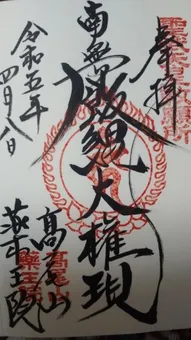 奉拝
南無飯縄大権現
高尾山
薬王院
令和五年
四月八日
高尾山
薬王院